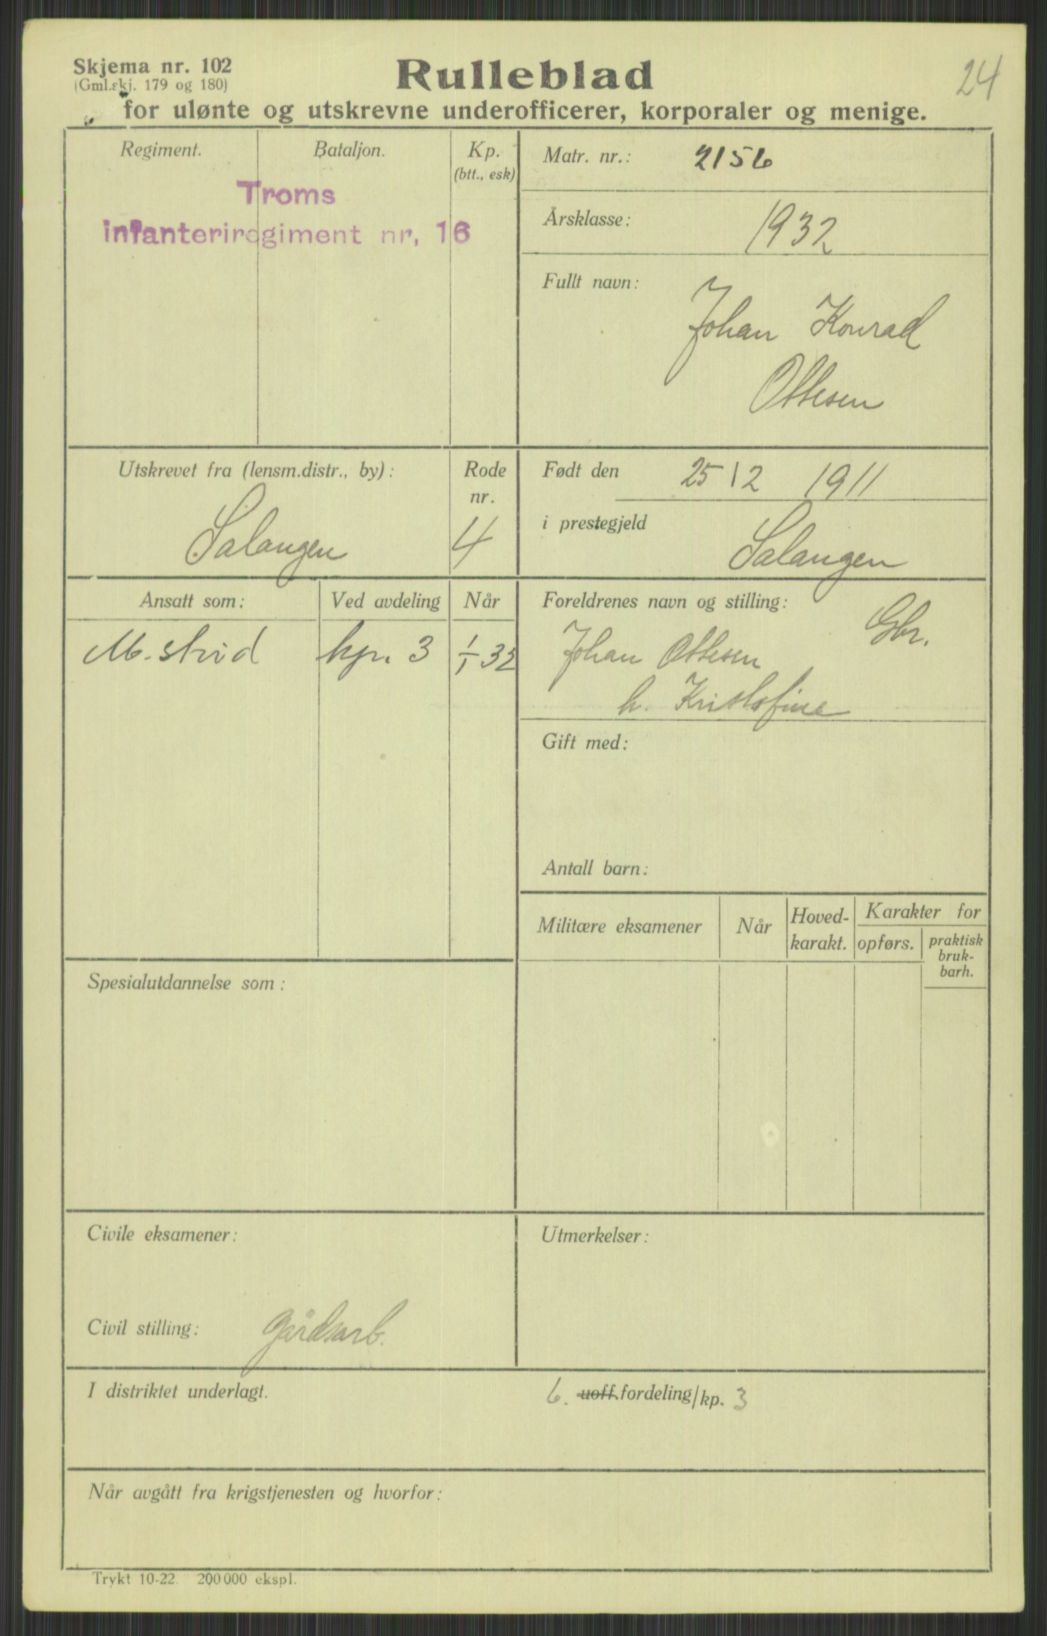 Skjema nr. 102
(Gml.skj. 179 og 180)
Rulleblad
24
for ulønte og utskrevne underofficerer, korporaler og menige.
Regiment.
Bataljon.
Kp.
(btt., esk)
Troms
infanteriregiment nr, 16
Matr. nr.: 2156
Årsklasse: 1932
Fullt navn: Johan Konrad
Ottesen
Utskrevet fra (lensm.distr., by):
Salangen
Rode
nr.
4
Født den 25 12 1911
i prestegjeld Salangen
Ansatt som:
Ved avdeling
Når
M. strid
kp. 3
1/1 32
Foreldrenes navn og stilling:
Gbr.
Johan Ottesen
h. Kristofine
Gift med:
Antall barn:
Militære eksamener
Når
Hoved-
karakt.
Karakter for
opførs.
praktisk
bruk-
barh.
Spesialutdannelse som:
Civile eksamener:
Civil stilling: Gårdsarb.
Utmerkelser:
I distriktet underlagt.
6. uoff.fordeling/kp. 3
Når avgått fra krigstjenesten og hvorfor:
Trykt 10-22. 200000 ekspl.